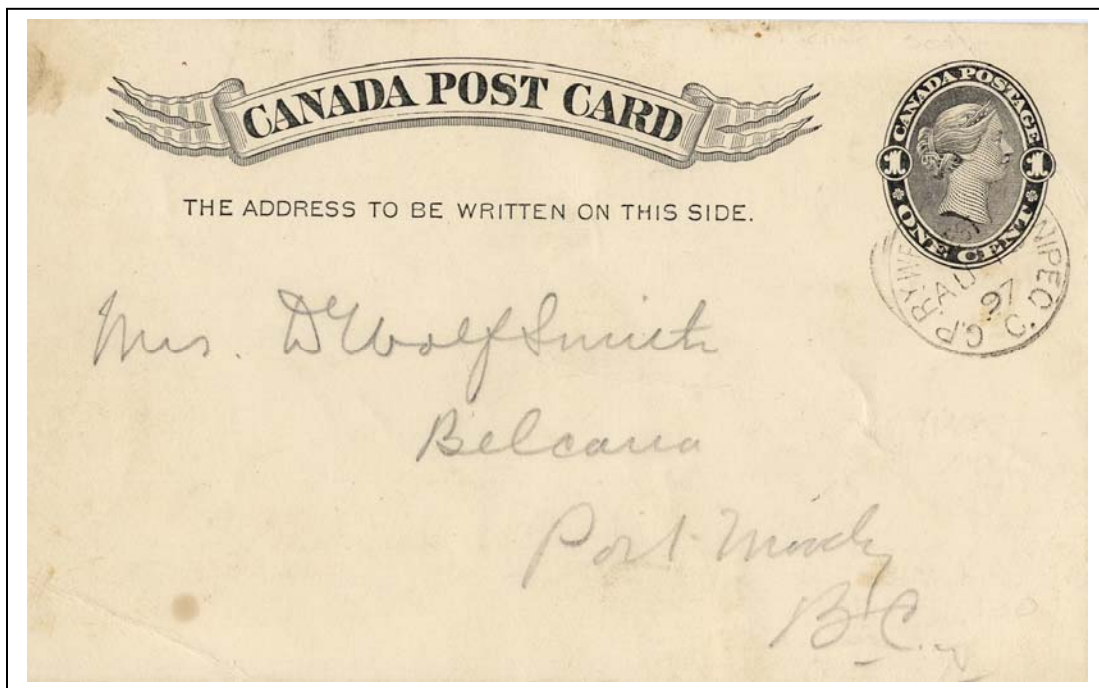 CANADA POST CARD
THE ADDRESS TO BE WRITTEN ON THIS SIDE.
CANADA POSTAGE
1 1
ONE CENT
C.P.RY. WINNIPEG
AU
97
C.
Mrs. DeWolf Smith
Belcarra
Port Moody
B.C.